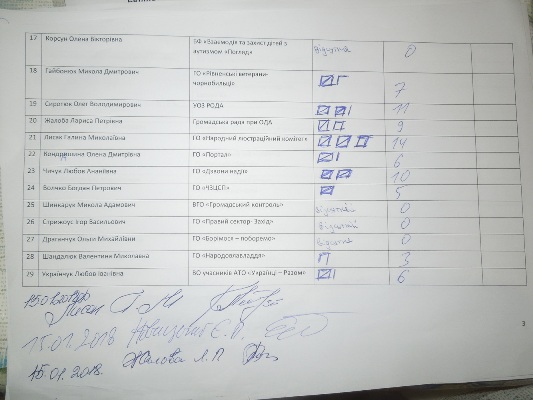 17 Корсун Олена Вікторівна БФ «Взаємодія та захист дітей з аутизмом «Погляд» відсутня 0
18 Гайбонюк Микола Дмитрович ГО «Рівненські ветерани-чорнобильці» 7
19 Сиротюк Олег Володимирович УОЗ РОДА 11
20 Жалоба Лариса Петрівна Громадська рада при ОДА 9
21 Лисак Галина Миколаївна ГО «Народний люстраційний комітет» 14
22 Олена Дмитрівна ГО «Портал» 6
23 Чичук Любов Ананіївна ГО «Дзвони надії» 10
24 Войчко Богдан Петрович ГО «ЧЗЦСП» 5
25 Шинкарук Микола Адамович ВГО «Громадський контроль» відсутній 0
26 Стрижеус Ігор Васильович ГО «Правий сектор- Захід» відсутній 0
27 Драганчук Ольга Михайлівна ГО «Борімося – поборемо» відсутня 0
28 Шандалюк Валентина Миколаївна ГО «Народовладдя» 3
29 Українчук Любов Іванівна ВО учасників АТО «Українці – Разом» 6
15.01.2018
15.01.2018 Є.
3
15.01.2018. Жалоба Л.П